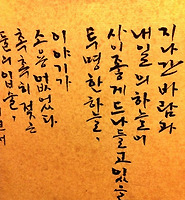 지나간 바람과
내일의 하늘이
사이좋게 드나들고 있을
투명한 하늘,
이야기가
소용없었다.
촉촉히 젖은
둘의 입술,